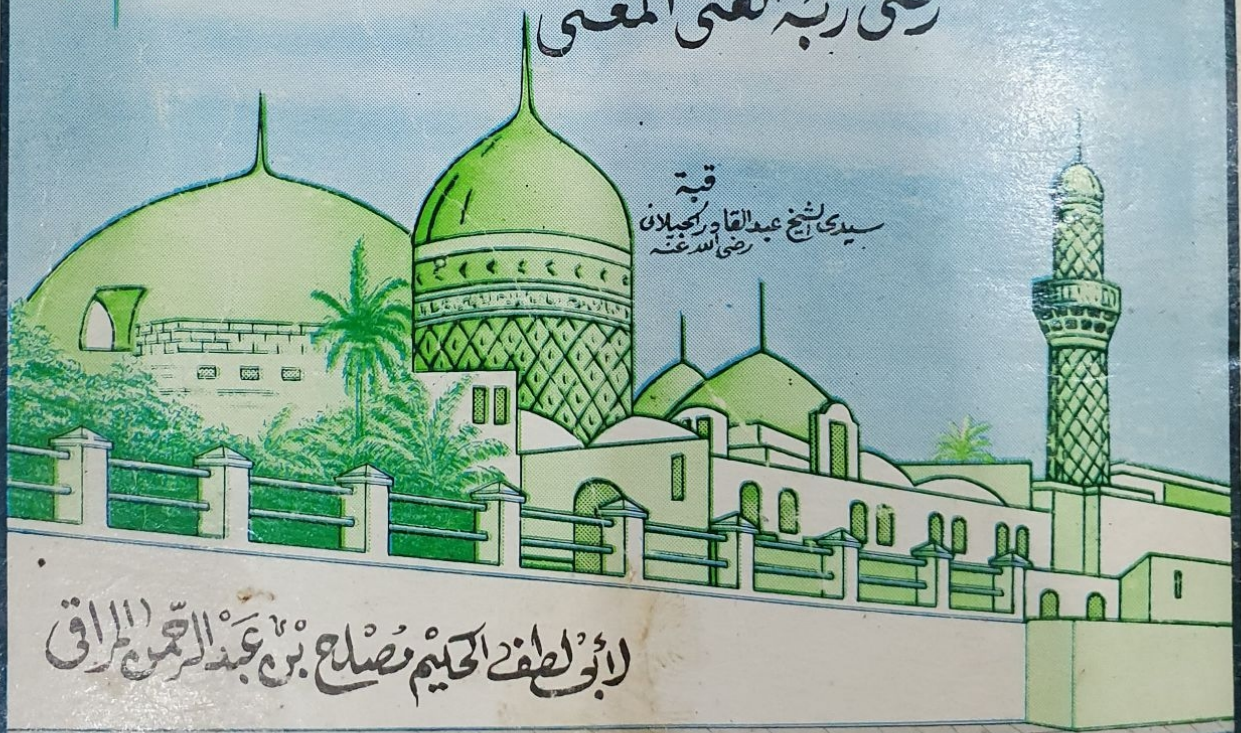 رضى ربّه الغنى المغنى
قبة
سيدى الشيخ عبد القادر الجيلانى
رضى الله عنه
لأبى لطف الحكيم مُصْلح بْن عَبْد الرّحمن المراقى